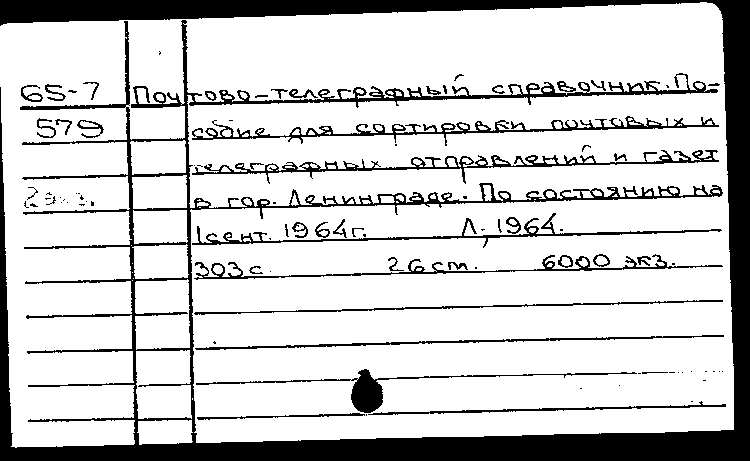 65-7 Почтово-телеграфный справочник. По=
579 собие для сортировки почтовых и
телеграфных отправлений и газет
2экз. в гор. Ленинграде. По состоянию на
1 сент. 1964г. Л., 1964.
303 с. 26 см. 6000 экз.